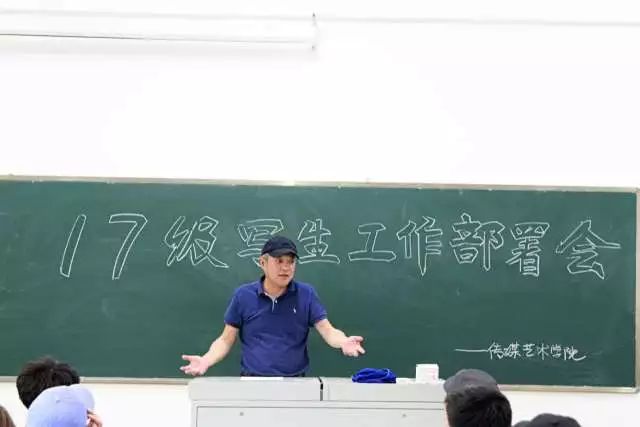 17级写生工作部署会
——传媒艺术学院